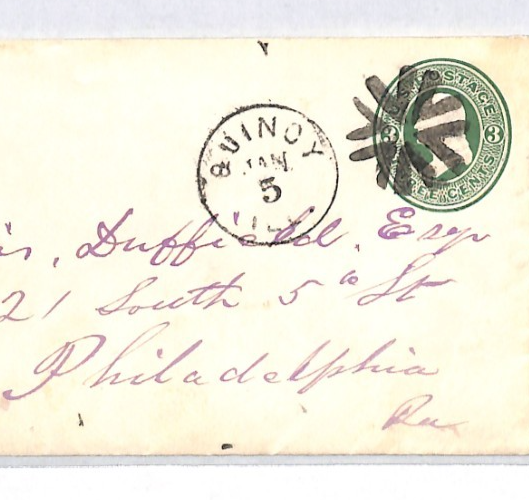 U.S. POSTAGE
3 3
THREE CENTS
QUINCY
JAN.
5
ILL.
Duffield, Esqr
21 South 5th St
Philadelphia
Pa